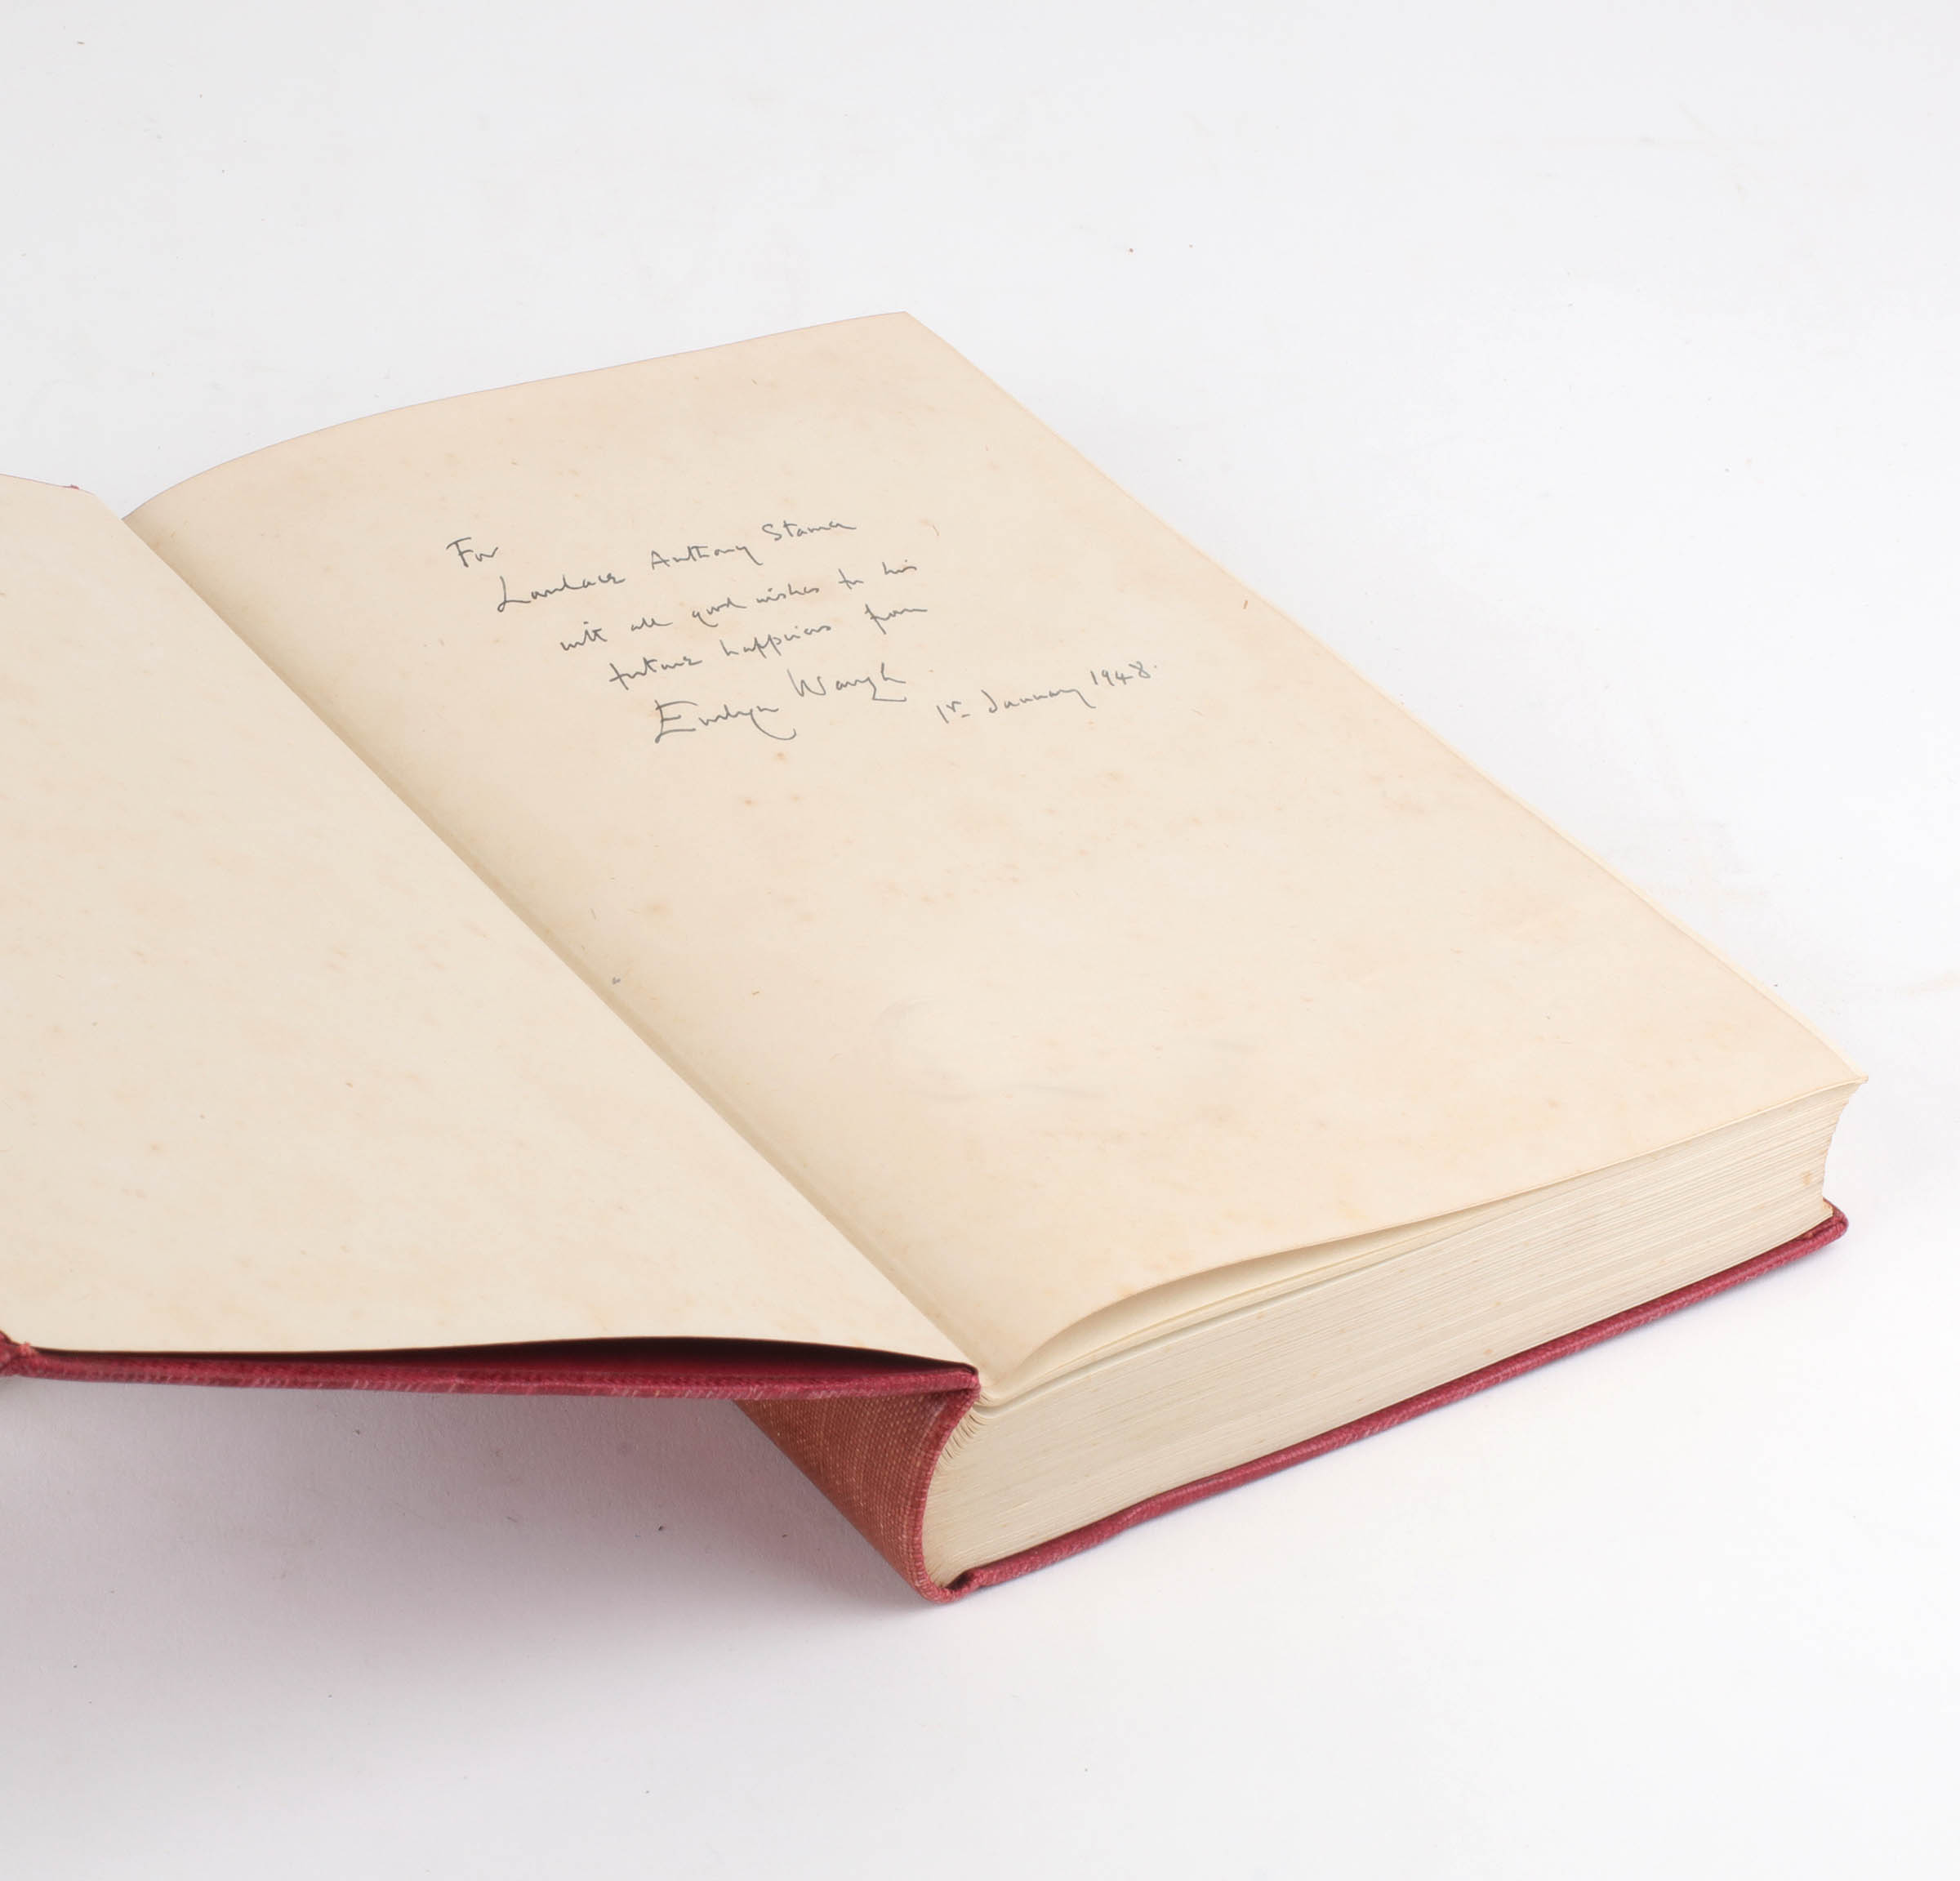 For
Anthony Stamer
with all good wishes for his
future happiness from
Evelyn Waugh
1st January 1948.